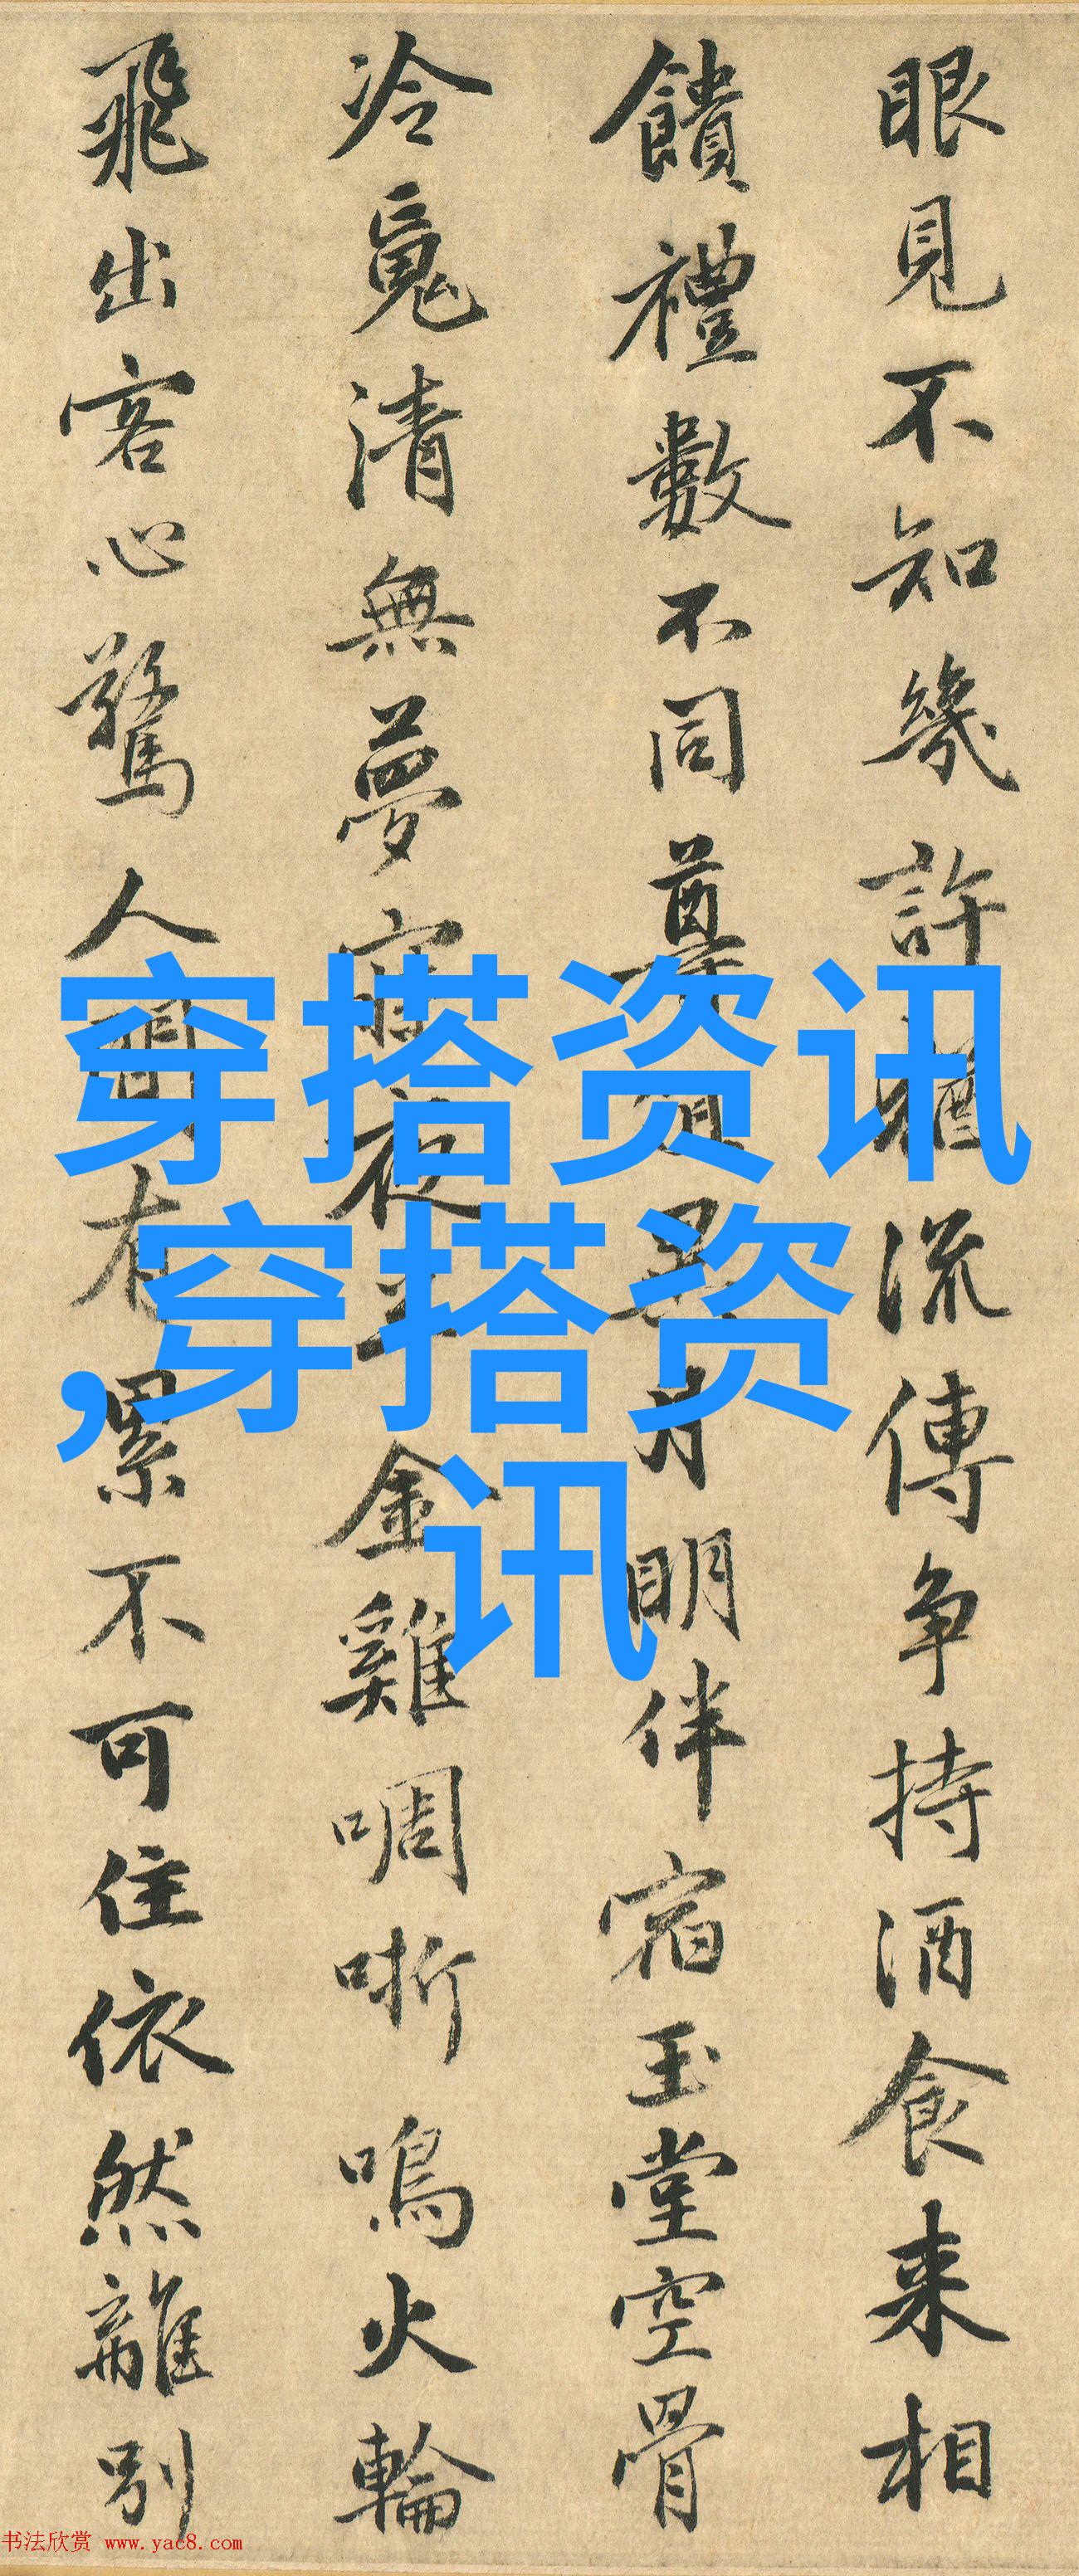 眼見不知幾許猶流傳争持酒食来相
饋禮數不同尊異月明伴宿玉堂空骨
冷魂清無夢寐夜半金雞啁哳鳴火輪
飛出客心驚人間有累不可住依然離別
穿搭资讯
,穿搭资
讯
书法欣赏 www.yac8.com